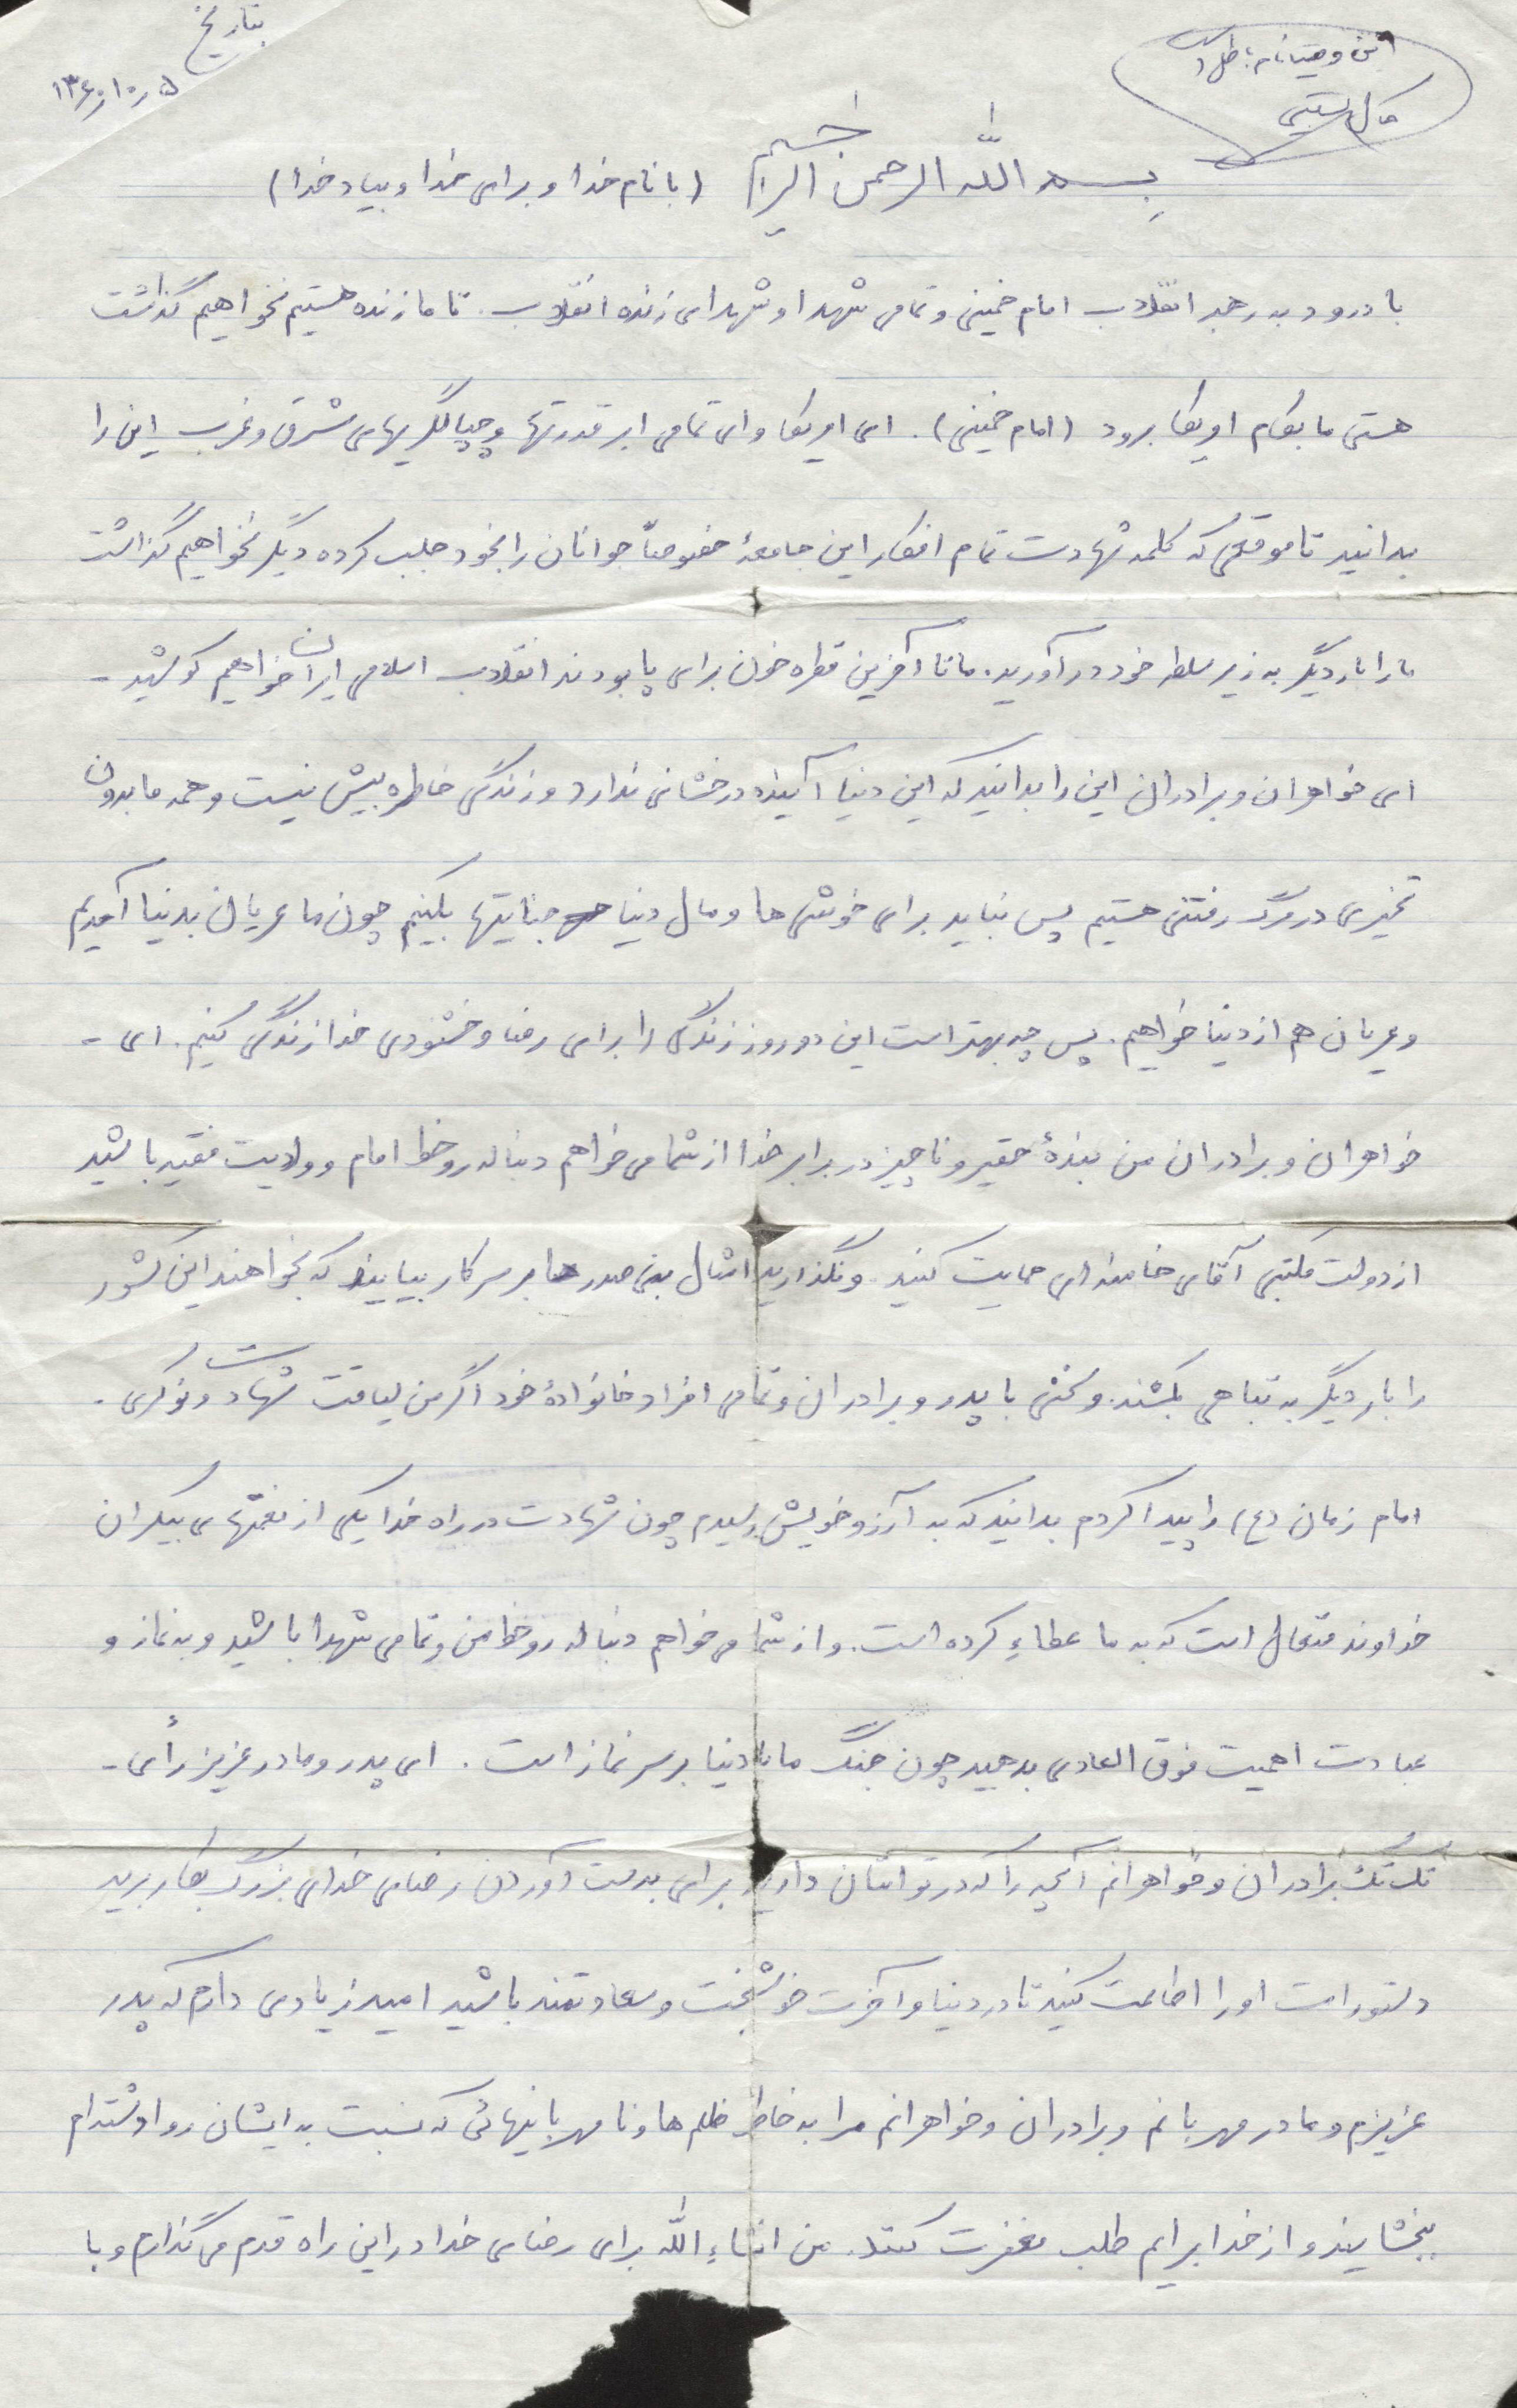 بتاریخ
۱۳۶۰ر۱۰ر۵
این وصیتنامه باطل
بسم الله الرحمن الرحیم (با نام خدا و برای خدا و بیاد خدا)
با درود به رهبر انقلاب امام خمینی و تمامی شهدا و شهدای زنده انقلاب. تا ما زنده هستیم نخواهیم گذاشت
هستی ما بکام امریکا برود (امام خمینی). ای امریکا وای تمامی ابر قدرتها و چپاولگریهای شرق و غرب این را
بدانید تا موقعی که کلمه شهادت تمام افکار این جامعهٔ خصوصاً جوانان را بخود جلب کرده دیگر نخواهیم گذاشت
ما را بار دیگر به زیر سلطه خود در آورید. ما تا آخرین قطره خون برای پا بودند انقلاب اسلامی ایران خواهیم کوشید -
ای خواهران و برادران این را بدانید که این دنیا آینده درخشانی ندارد و زندگی خاطره بیش نیست و همه ما بدون
تخیری در مرگ رفتنی هستیم پس نباید برای خوشی ها و مال دنیا جنایتها بکنیم چون ما عریان بدنیا آمدیم
و عریان هم از دنیا خواهیم. پس چه بهتر است این دو روز زندگی را برای رضا و خشنودی خدا زندگی کنیم. ای -
خواهران و برادران من بندهٔ حقیر و ناچیز در برابر خدا از شما می خواهم دنباله رو خط امام و ولایت فقیه باشید
از دولت مکتبی آقای خامنه ای حمایت کنید. و نگذارید امثال بنی صدرها بر سر کار بیایند که بخواهند این کشور
را بار دیگر به تباهی بکشند. و سخنی با پدر و برادران و تمامی افراد خانوادهٔ خود اگر من لیاقت شهادت و نوکری.
امام زمان (ع) را پیدا کردم بدانید که به آرزو خویش رسیدم چون شهادت در راه خدا یکی از نعمتهای بیکران
خداوند متعال است که به ما عطاءِ کرده است. و از شما می خواهم دنباله رو خط من و تمامی شهدا باشید و به نماز و
عبادت اهمیت فوق العادی بدهید چون جنگ ما با دنیا بر سر نماز است. ای پدر و مادر عزیز وأی -
تک تک برادران و خواهرانم آنچه را که در توانتان دارید برای بدست آوردن رضای خدای بزرگ بکار برید
دستورات او را اطاعت کنید تا در دنیا و آخرت خوشبخت و سعادتمند باشید امید زیادی دارم که پدر
عزیزم و مادر مهربانم و برادران و خواهرانم مرا به خاطر ظلم ها و نا مهربانیهائی که نسبت به ایشان روا داشته ام
ببخشایند و از خدا برایم طلب مغفرت کنند. من انشاءِ الله برای رضای خدا در این راه قدم می گذارم و با